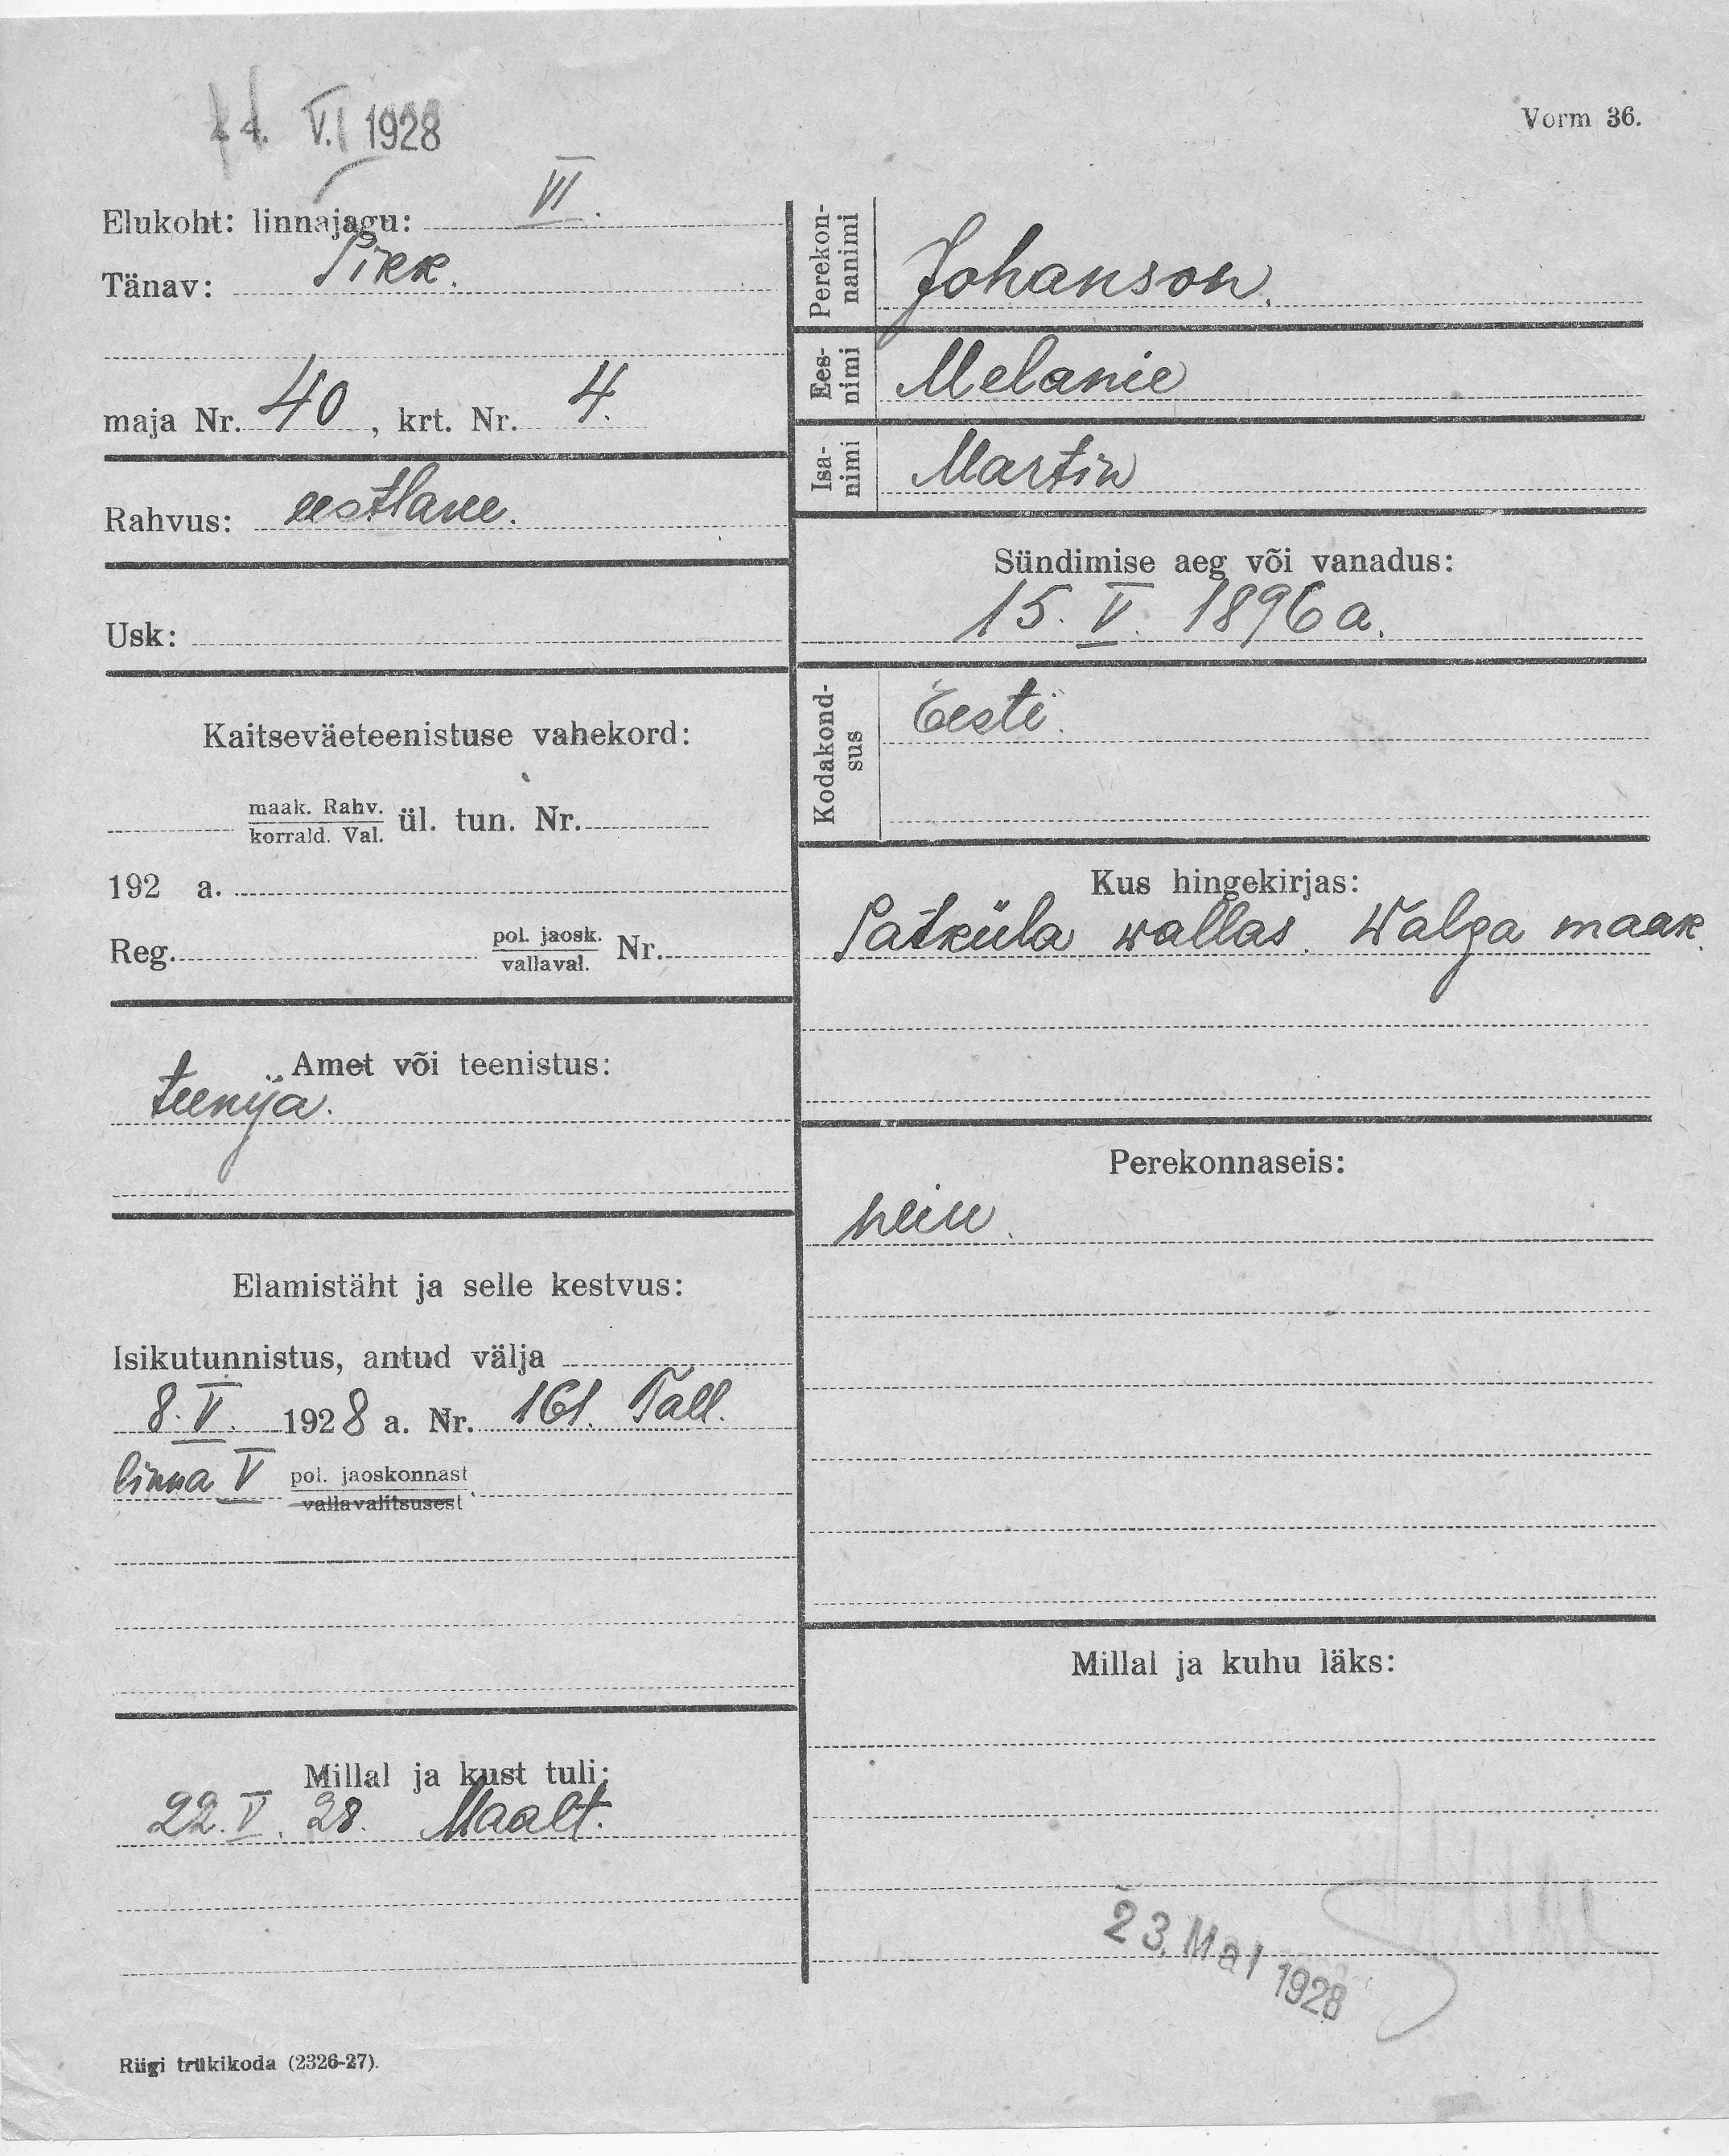 V.I 1928
Vorm 36.
Elukoht: linnajagu: VI.
Tänav: Pikk.
maja Nr. 40, krt. Nr. 4.
Rahvus: eestlane.
Usk:
Kaitseväeteenistuse vahekord:
maak. Rahv.
korrald. Val.
ül. tun. Nr.
192 a.
Reg. pol. jaosk. Nr.
vallaval.
Amet või teenistus:
teenija.
Elamistäht ja selle kestvus:
Isikutunnistus, antud välja
8. V. 1928 a. Nr. 161. Tall.
linna V pol. jaoskonnast
vallavalitsusest
Millal ja kust tuli:
22. V. 28. Maalt.
Riigi trükikoda (2326-27).
Perekon-
nanimi
Johanson.
Ees-
nimi
Melanie
Isa-
nimi
Martin
Sündimise aeg või vanadus:
15. V. 1896 a.
Kodakond-
sus
Eesti.
Kus hingekirjas:
wallas. Walga maak.
Perekonnaseis:
neiu.
Millal ja kuhu läks:
23. Mai 1928